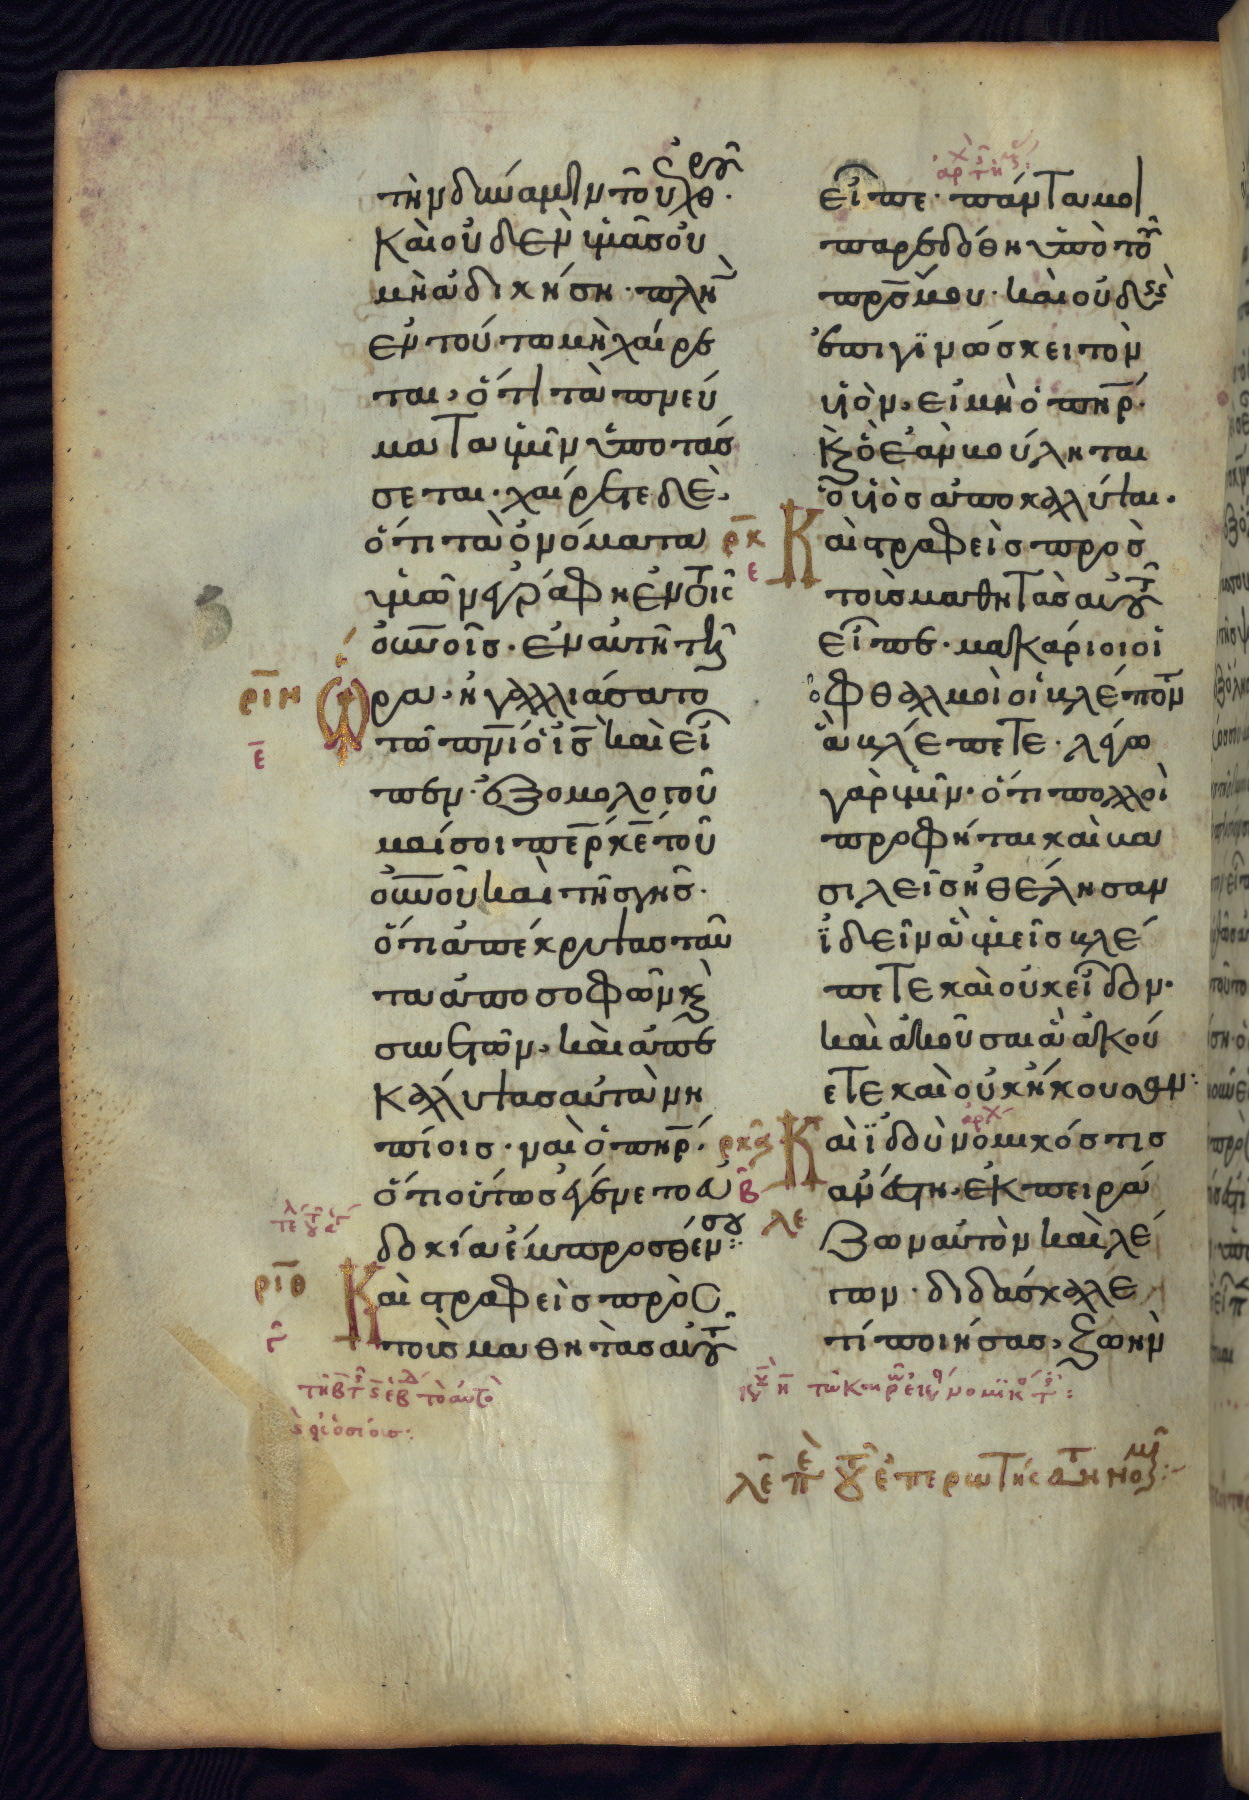 τὴν δύναμιν τοῦ ἐχθροῦ·
καὶ οὐδὲν ὑμᾶς οὐ
μὴ ἀδικήση· πλὴν
ἐν τούτω μὴ χαίρε
ται, ὅτι τὰ πνεύ
ματα ὑμῖν ὑποτάσ
σεται· χαίρετε δὲ,
ὅτι τὰ ὀνόματα
ὑμῶν ἐγράφη ἐν τοῖς
οὐνοῖς· ἐν αὐτῆ τῆ
ριη ὥρα· ἠγαλλιάσατο
ε τῶ πνι ὁ ις καὶ εἶ
πεν· ἐξομολογοῦ
μαί σοι περ κε τοῦ
οὐνοῦ καὶ τῆς γῆς·
ὅτι ἀπέκρυψας ταῦ
τα ἀπὸ σοφῶν κὲ
συνετῶν, καὶ ἀπε
κάλυψας αὐτὰ νη
πίοις· ναὶ ὁ πηρ·
ὅτι οὕτως ἐγένετο εὐ
δοκία ἔμπροσθέν σου:
ριθ Καὶ στραφεὶς πρὸς
γ τοὺς μαθητὰς αὐτοῦ
εἶπε· πάντα μοι
παρεδόθη ὑπὸ τοῦ
πρς μου· καὶ οὐδεὶς
ἐπιγϊνώσκει τὸν
υἱὸν, εἰ μὴ ὁ πηρ·
κ ὧ ἐὰν βούληται
ὁ υἱὸς ἀποκαλύψαι·
ρκ Καὶ στραφεὶς προσ
ε τοὺς μαθητὰς αὐτοῦ
εἶπε· μακάριοι οἱ
ὀφθαλμοὶ οἱ βλέποντ
ἃ βλέπετε· λέγω
γὰρ ὑμῖν· ὅτι πολλοὶ
προφήται καὶ βα
σιλεῖς ἠθέλησαν
ϊδεῖν ἃ ὑμεῖς βλέ
πετε καὶ οὐκ εἶδον·
καὶ ἀκοῦσαι ἃ ἀκού
ετε καὶ οὐκ ἤκουσαν:
ρκα Καὶ ϊδοὺ νομικός τις
β ἀνέστη, ἐκπειρά
λε ζων αὐτὸν καὶ λέ
γων· διδάσκαλε
τί ποιήσας, ζωὴν